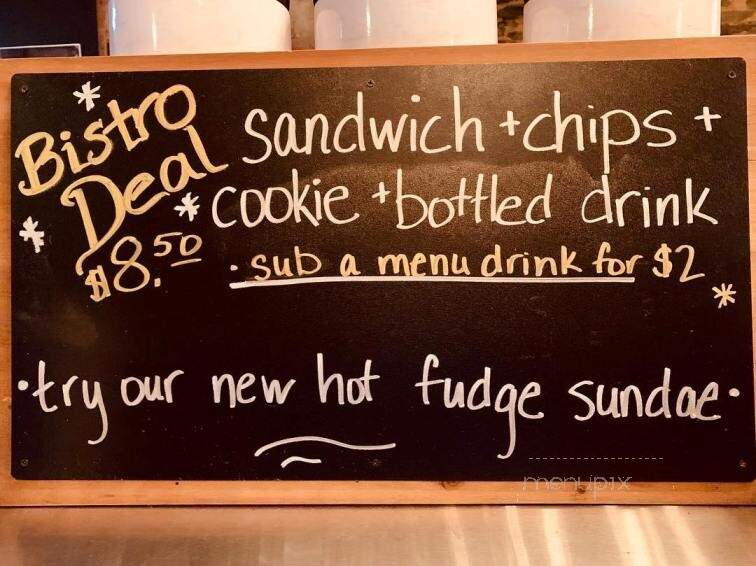 Bistro
Deal
$8.50
sandwich + chips +
cookie + bottled drink
· sub a menu drink for $2
· try our new hot fudge sundae ·
menupix